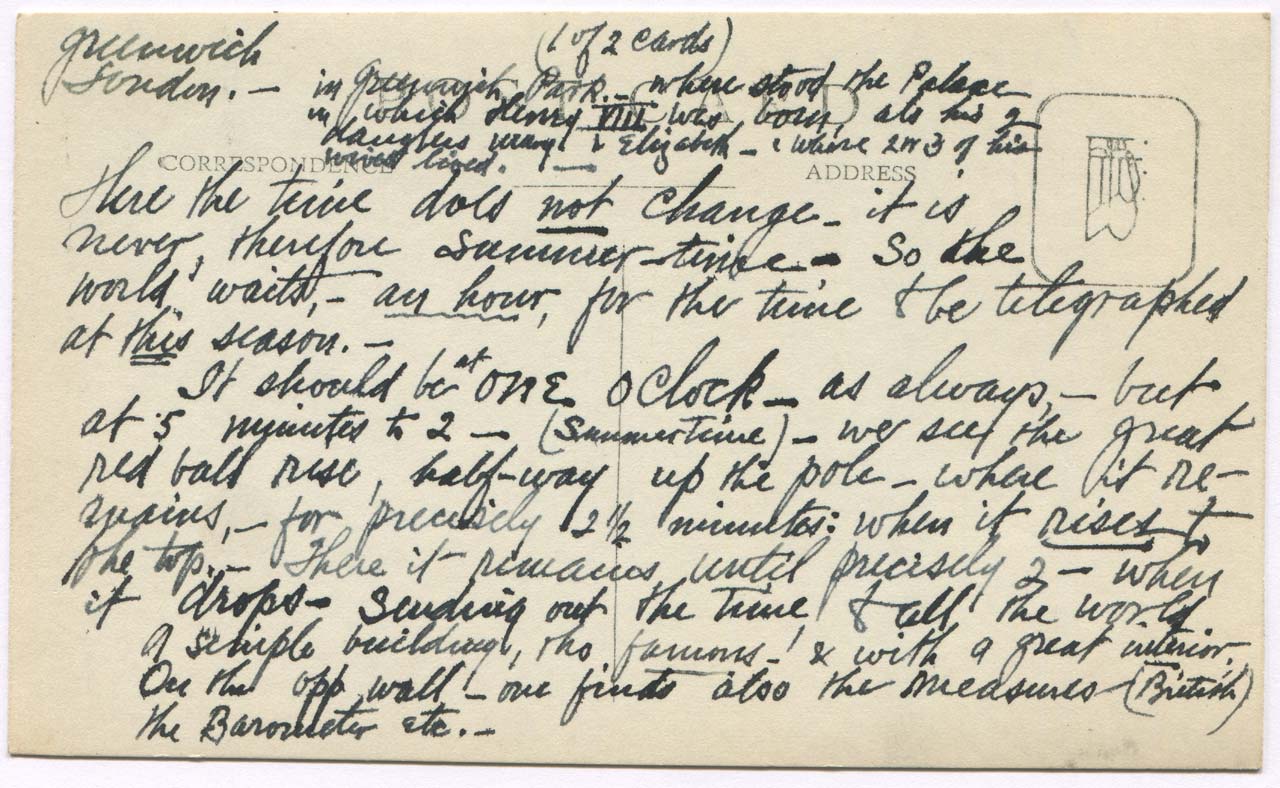 (1 of 2 cards)
Greenwich
London. —
in Greenwich Park. — where stood the Palace
in which Henry VIII was born, als his 2
daughters mary & Elizabeth — & where 2 or 3 of his
wives lived. —
POST CARD
CORRESPONDENCE
ADDRESS
Here the time does not change — it is
never, therefore summer-time — So the
world waits, — an hour, for the time to be telegraphed
at this season. —
It should be at ONE oClock — as always, — but
at 5 minutes to 2 — (Summertime) — we see the great
red ball rise, half-way up the pole — where it re-
mains, — for precisely 2 1/2 minutes: when it rises to
the top. — There it remains, until precisely 2 — when
it drops — Sending out the time, to all the world
A simple building, tho famous — & with a great interior.
On the opp wall — one finds also the measures (British)
the Barometer etc. —